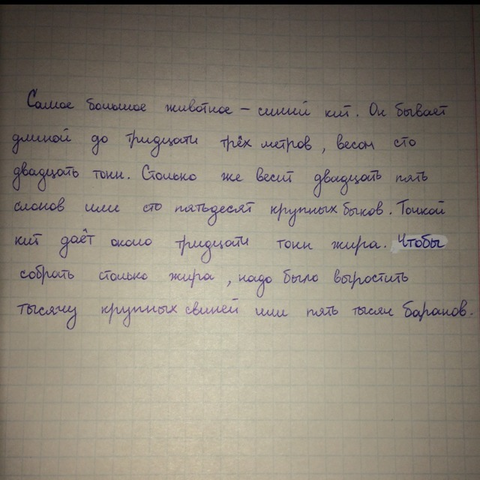 Самое большое животное – синий кит. Он бывает
длиной до тридцати трёх метров, весом сто
двадцать тонн. Столько же весит двадцать пять
слонов или сто пятьдесят крупных быков. Точкой
кит даёт около тридцати тонн жира. Чтобы
собрать столько жира, надо было выростить
тысячу крупных свиней или пять тысяч баранов.